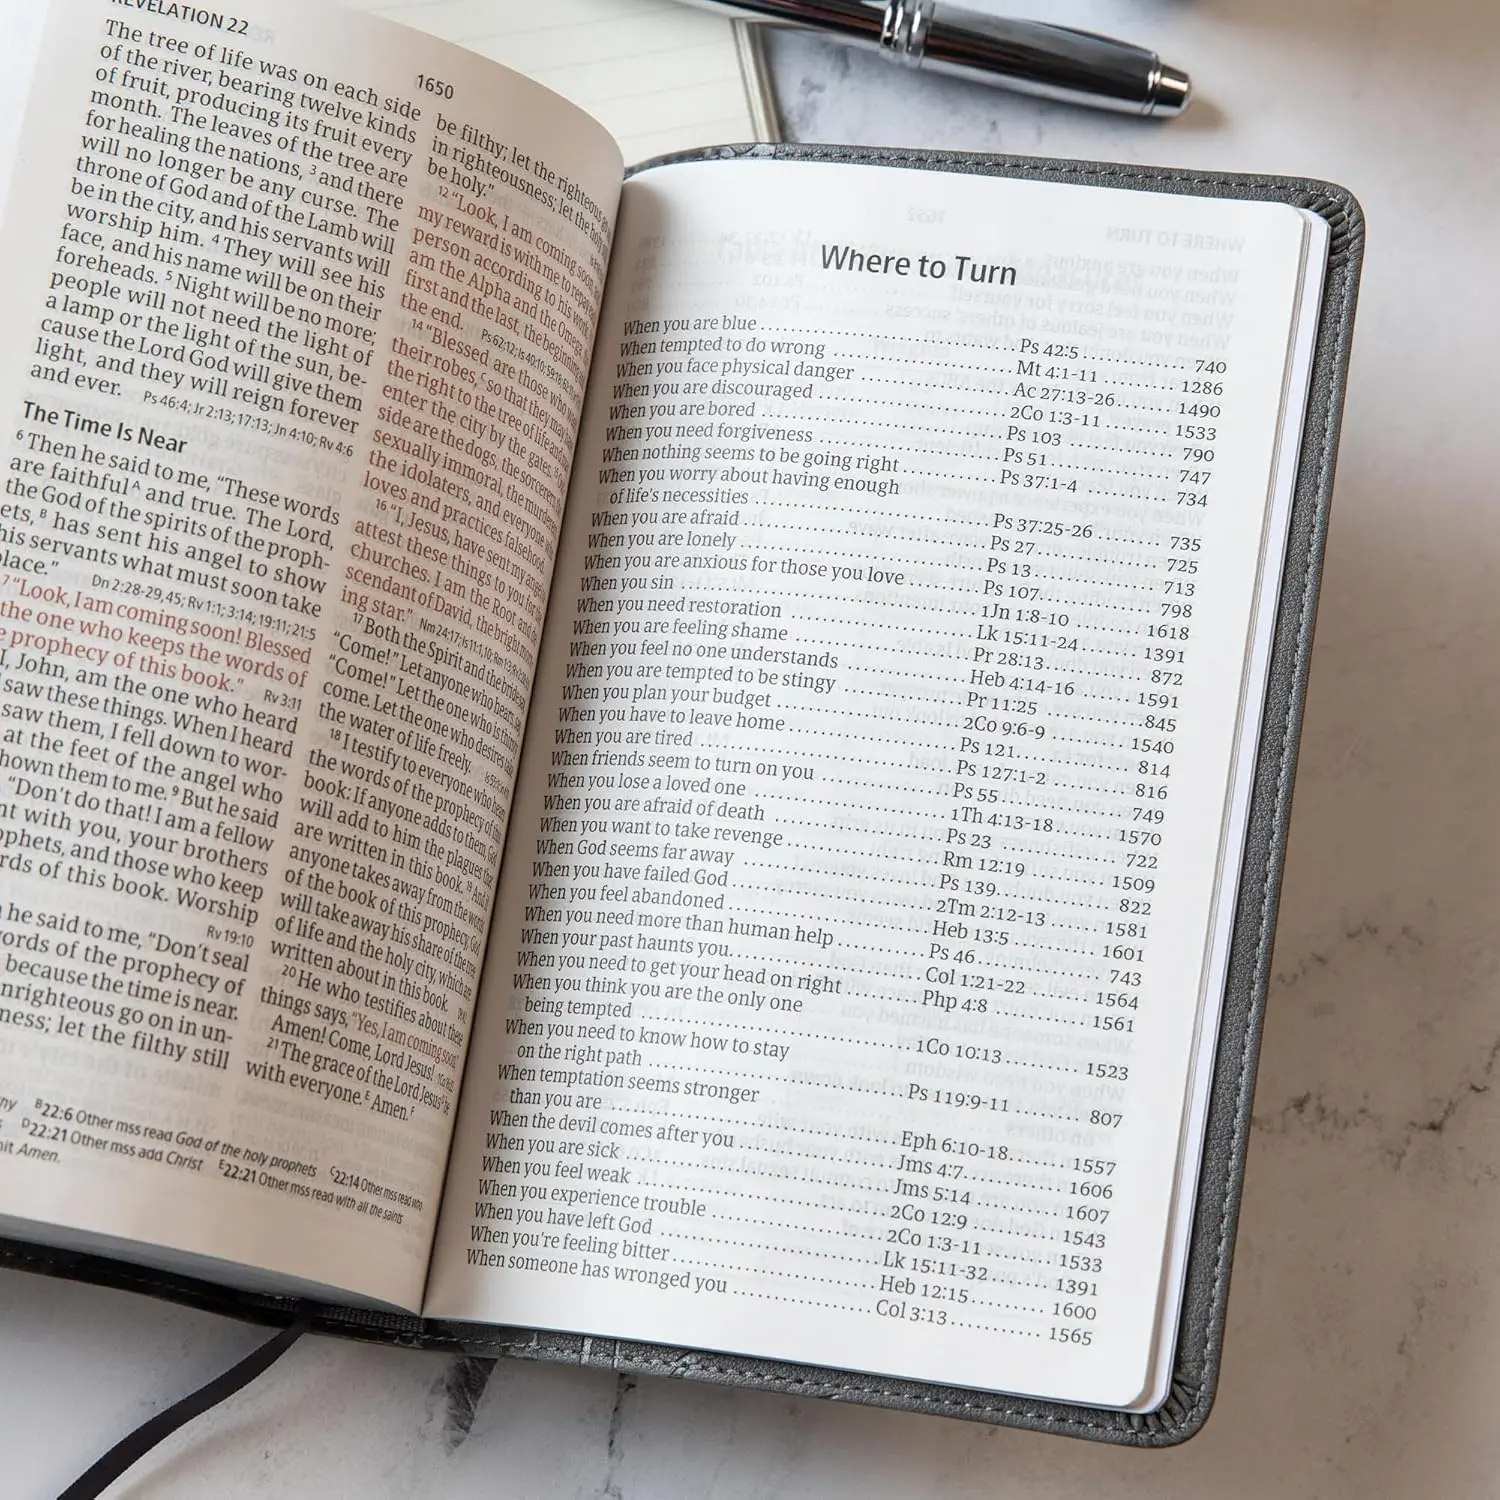 REVELATION 22
1650
The tree of life was on each side
of the river, bearing twelve kinds
of fruit, producing its fruit every
month. The leaves of the tree are
for healing the nations, 3 and there
will no longer be any curse. The
throne of God and of the Lamb will
be in the city, and his servants will
worship him. 4 They will see his
face, and his name will be on their
foreheads. 5 Night will be no more;
people will not need the light of
a lamp or the light of the sun, be-
cause the Lord God will give them
light, and they will reign forever
and ever. Ps 46:4; Jr 2:13; 17:13; Jn 4:10; Rv 4:6
The Time Is Near
6 Then he said to me, “These words
are faithful A and true. The Lord,
the God of the spirits of the proph-
ets, B has sent his angel to show
his servants what must soon take
place.” Dn 2:28-29,45; Rv 1:1; 3:14; 19:11; 21:5
7 “Look, I am coming soon! Blessed
the one who keeps the words of
prophecy of this book.” Rv 3:11
I, John, am the one who heard
saw these things. When I heard
saw them, I fell down to wor-
at the feet of the angel who
shown them to me. 9 But he said
“Don’t do that! I am a fellow
with you, your brothers
and those who keep
of this book. Worship
Rv 19:10
he said to me, “Don’t seal
words of the prophecy of
because the time is near.
unrighteous go on in un-
let the filthy still
be filthy; let the righteous
in righteousness; let the holy
be holy.”
12 “Look, I am coming soon,
my reward is with me to repay
person according to his work.
am the Alpha and the Omega, the
first and the last, the beginning and
the end. Ps 62:12; Is 40:10;
14 “Blessed are those who
their robes, C so that they may have
the right to the tree of life and
enter the city by the gates.
side are the dogs, the sorcerers, the
sexually immoral, the murderers,
the idolaters, and everyone who
loves and practices falsehood.
16 “I, Jesus, have sent my angel to
attest these things to you for the
churches. I am the Root and de-
scendant of David, the bright morn-
ing star.” Nm 24:17; Is 11:1,10;
17 Both the Spirit and the bride say,
“Come!” Let anyone who hears, say,
“Come!” Let the one who is thirsty
come. Let the one who desires take
the water of life freely.
18 I testify to everyone who hears
the words of the prophecy of this
book: If anyone adds to them, God
will add to him the plagues that
are written in this book. 19 And if
anyone takes away from the words
of the book of this prophecy, God
will take away his share of the tree
of life and the holy city, which are
written about in this book.
20 He who testifies about these
things says, “Yes, I am coming soon.”
Amen! Come, Lord Jesus!
21 The grace of the Lord Jesus
with everyone. E Amen. F
B 22:6 Other mss read God of the holy prophets C 22:14 Other mss read who
D 22:21 Other mss add Christ E 22:21 Other mss read with all the saints
omit Amen.
Where to Turn
When you are blue Ps 42:5 740
When tempted to do wrong Mt 4:1-11 1286
When you face physical danger Ac 27:13-26 1490
When you are discouraged 2Co 1:3-11 1533
When you are bored Ps 103 790
When you need forgiveness Ps 51 747
When nothing seems to be going right Ps 37:1-4 734
When you worry about having enough
of life’s necessities Ps 37:25-26 735
When you are afraid Ps 27 725
When you are lonely Ps 13 713
When you are anxious for those you love Ps 107 798
When you sin 1Jn 1:8-10 1618
When you need restoration Lk 15:11-24 1391
When you are feeling shame Pr 28:13 872
When you feel no one understands Heb 4:14-16 1591
When you are tempted to be stingy Pr 11:25 845
When you plan your budget 2Co 9:6-9 1540
When you have to leave home Ps 121 814
When you are tired Ps 127:1-2 816
When friends seem to turn on you Ps 55 749
When you lose a loved one 1Th 4:13-18 1570
When you are afraid of death Ps 23 722
When you want to take revenge Rm 12:19 1509
When God seems far away Ps 139 822
When you have failed God 2Tm 2:12-13 1581
When you feel abandoned Heb 13:5 1601
When you need more than human help Ps 46 743
When your past haunts you Col 1:21-22 1564
When you need to get your head on right Php 4:8 1561
When you think you are the only one
being tempted 1Co 10:13 1523
When you need to know how to stay
on the right path Ps 119:9-11 807
When temptation seems stronger
than you are Eph 6:10-18 1557
When the devil comes after you Jms 4:7 1606
When you are sick Jms 5:14 1607
When you feel weak 2Co 12:9 1543
When you experience trouble 2Co 1:3-11 1533
When you have left God Lk 15:11-32 1391
When you’re feeling bitter Heb 12:15 1600
When someone has wronged you Col 3:13 1565